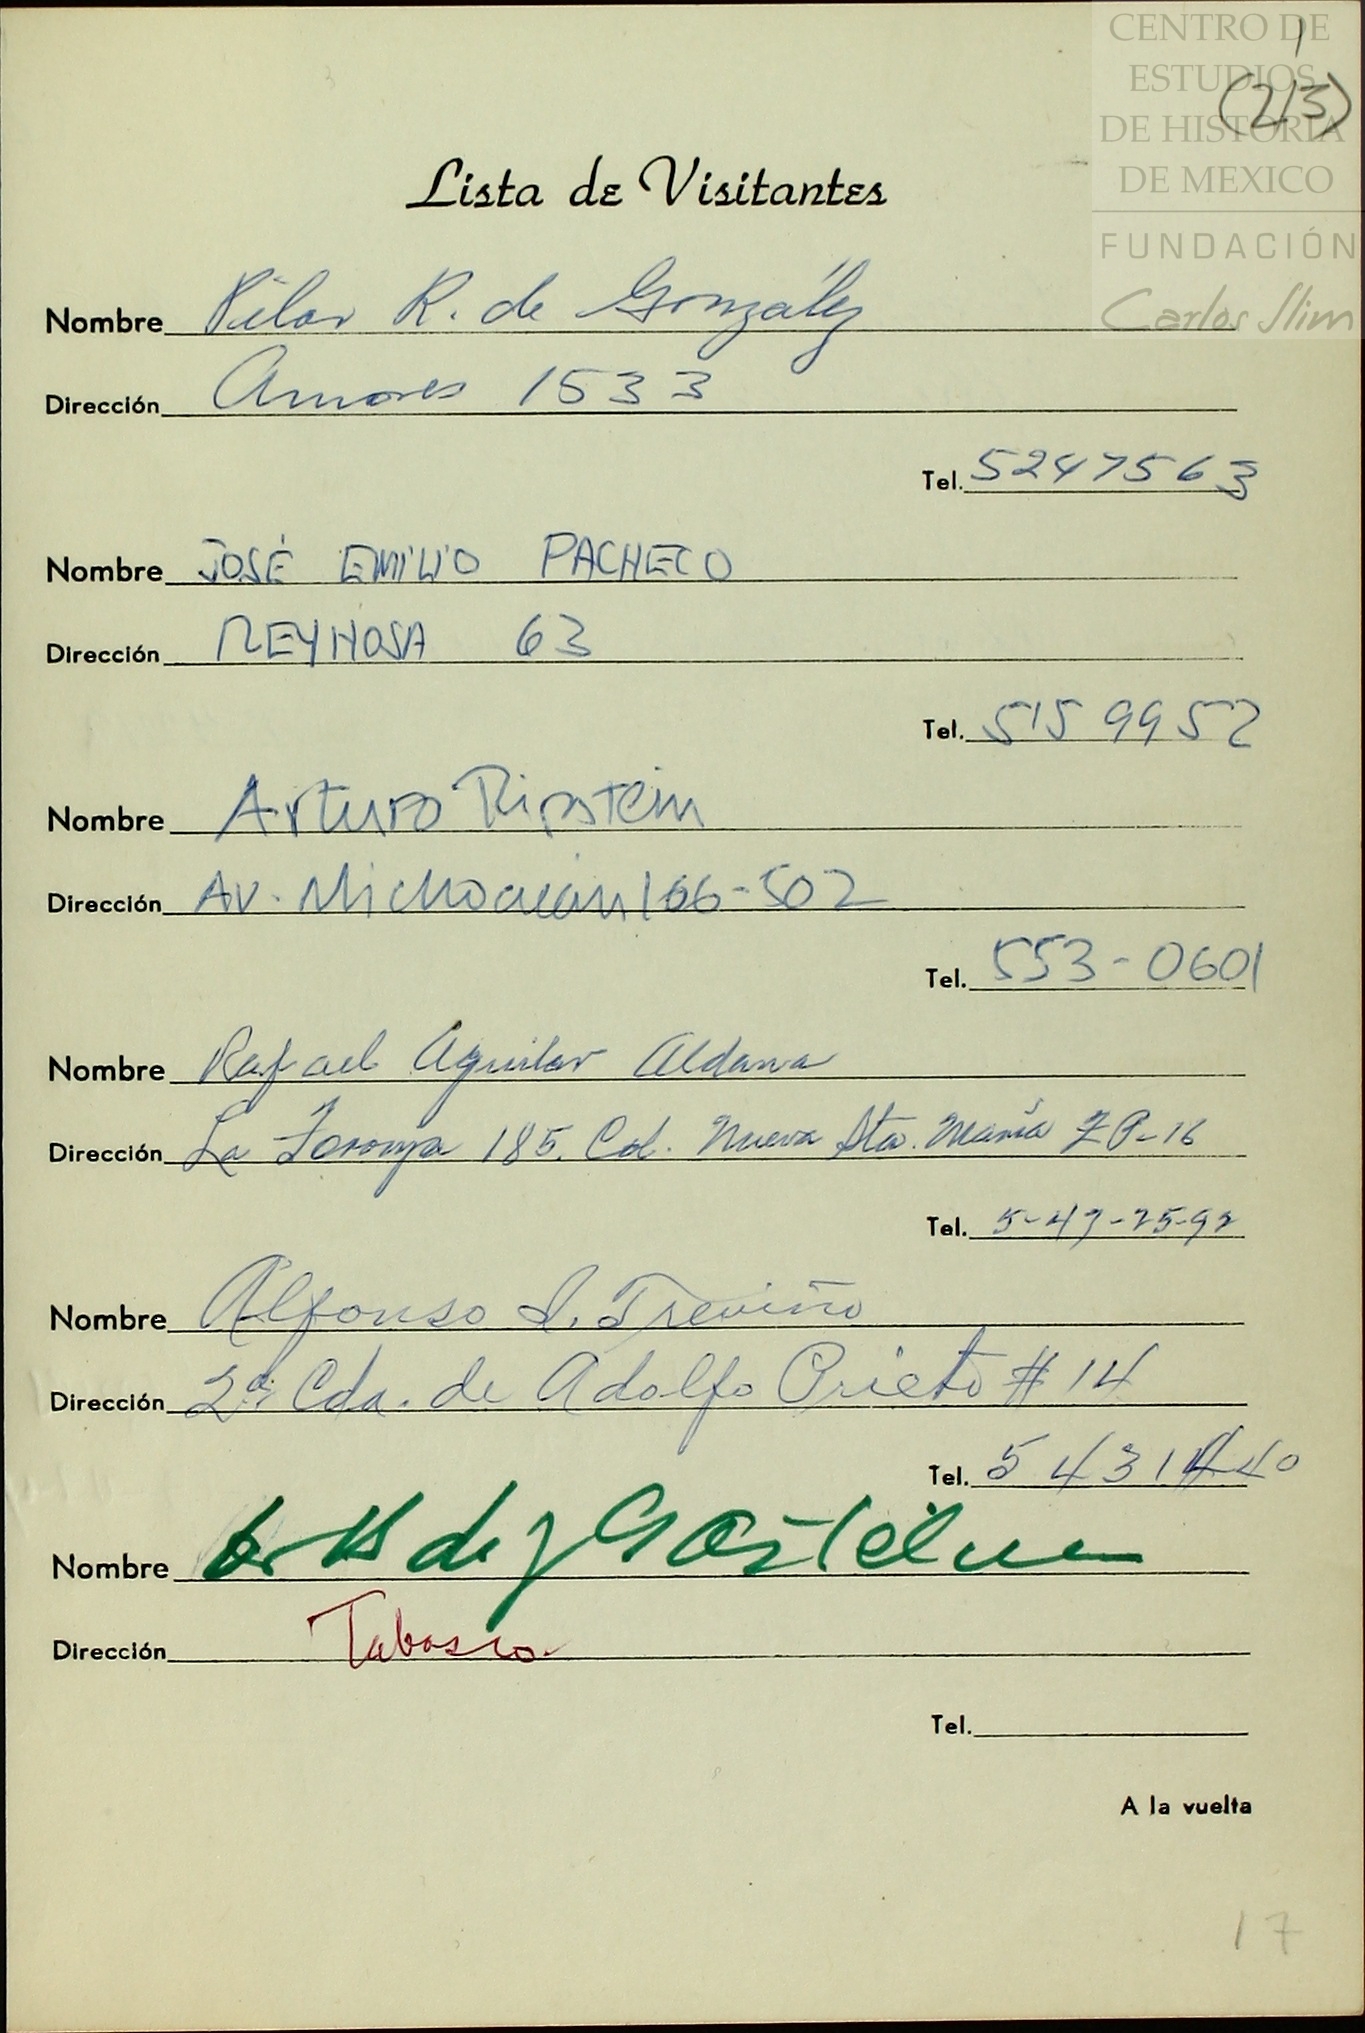 CENTRO DE
ESTUDIOS
DE HISTORIA
DE MEXICO
FUNDACIÓN
Carlos Slim
1
(213)
Lista de Visitantes
Nombre Pilar R. de González
Dirección Amores 1533
Tel. 5247563
Nombre JOSÉ EMILIO PACHECO
Dirección REYNOSA 63
Tel. 515 9952
Nombre Arturo Ripstein
Dirección Av. Michoacán 166-502
Tel. 553-0601
Nombre Rafael Aguilar Aldana
Dirección La Toronja 185. Col. Nueva Sta. María Z P-16
Tel. 5-47-25-92
Nombre Alfonso S. Treviño
Dirección 2ª Cda. de Adolfo Prieto # 14
Tel. 5 431440
Nombre
Dirección Tabasco
Tel.
A la vuelta
17